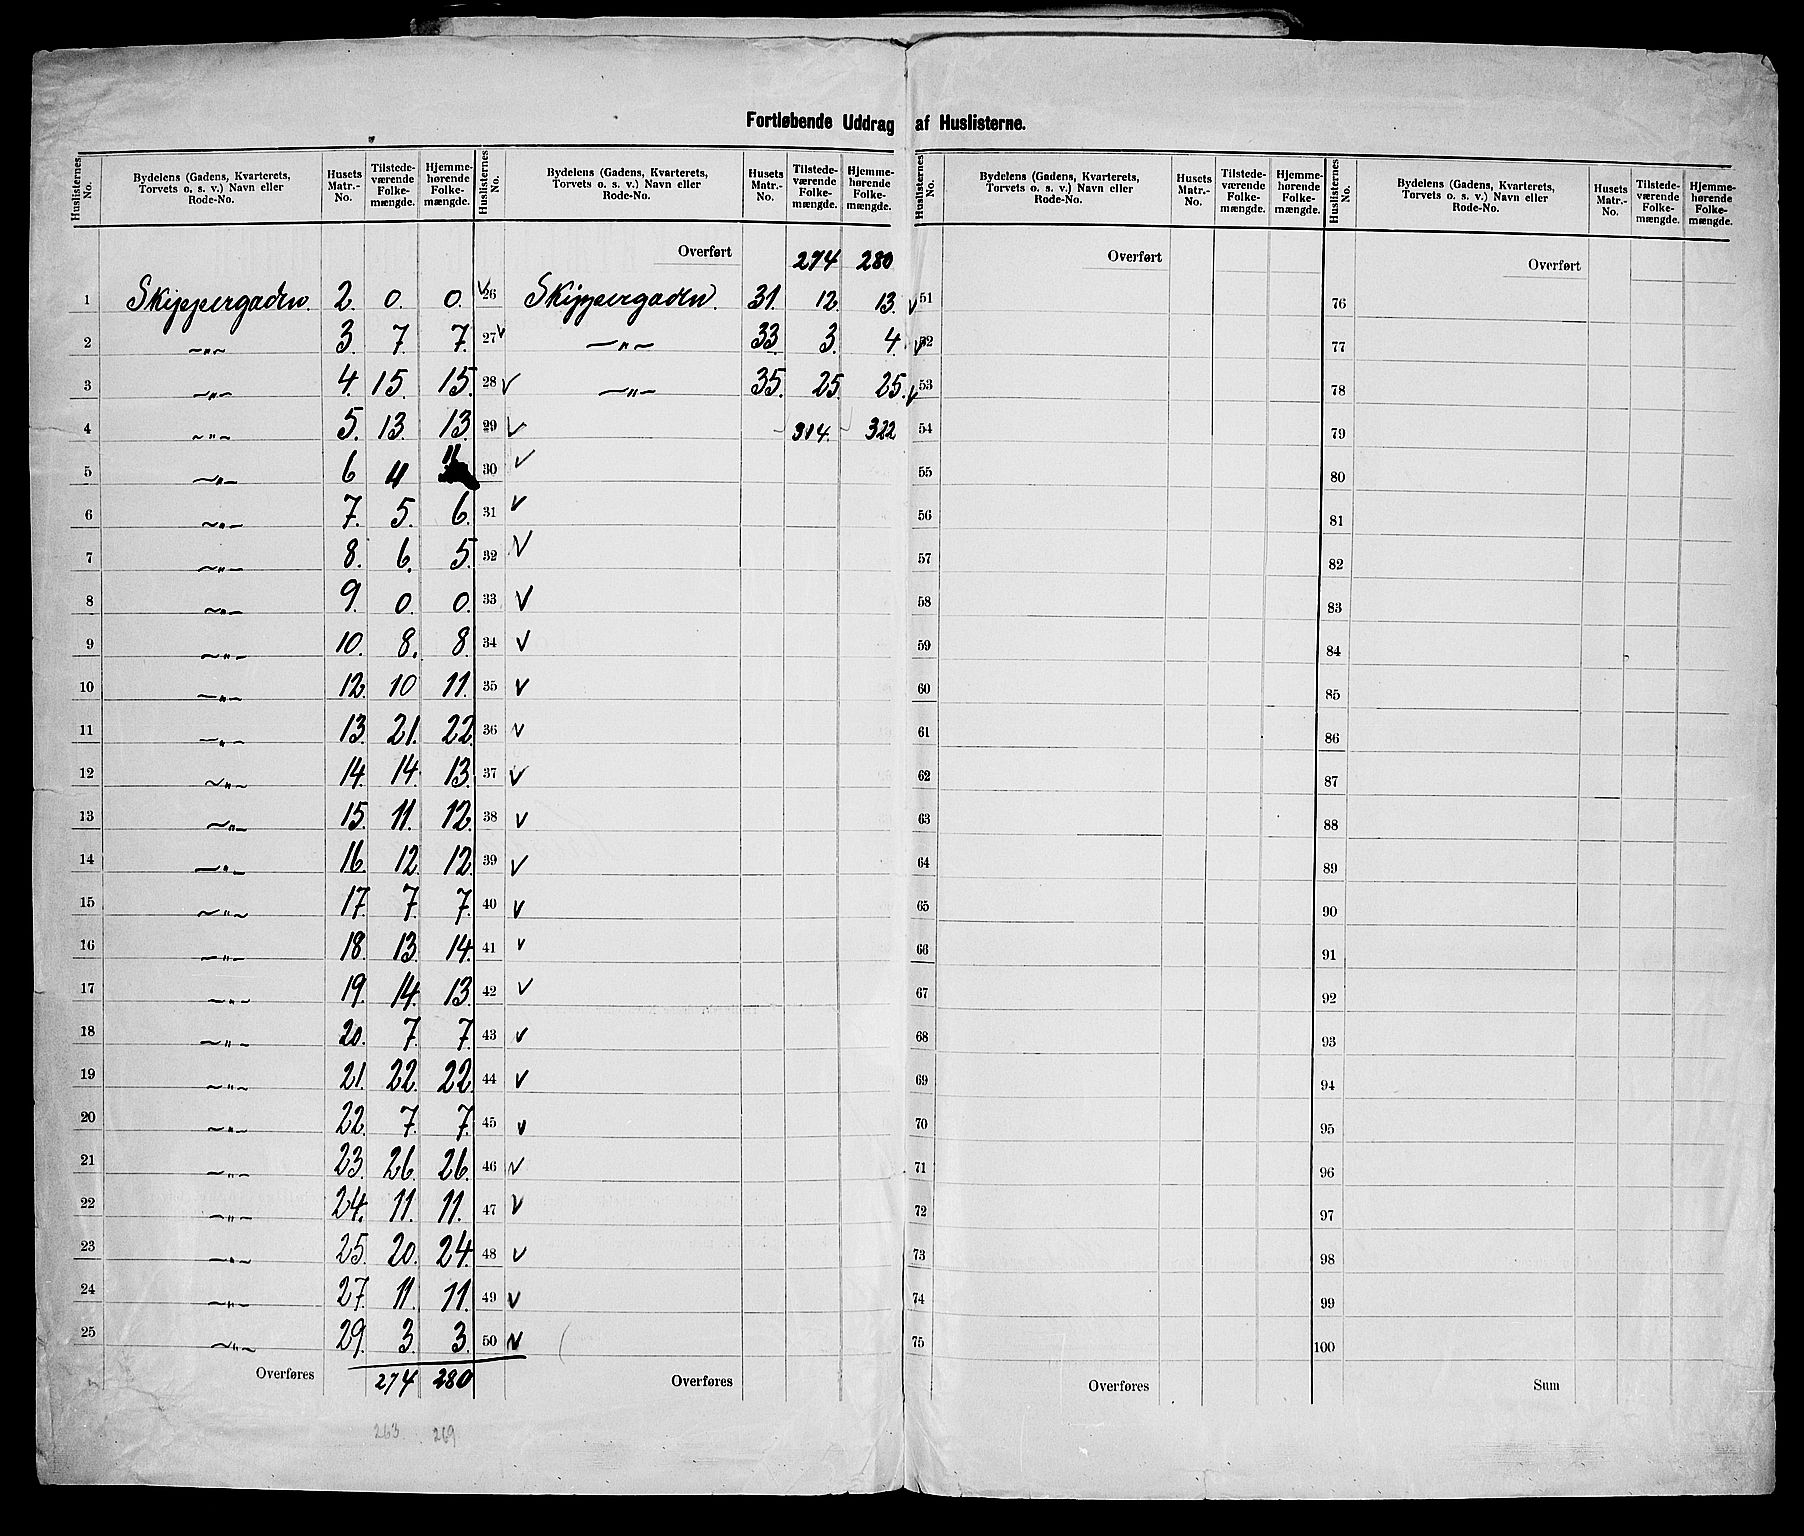 Fortløbende Uddrag af Huslisterne.
Huslisternes No. Bydelens (Gadens, Kvarterets, Torvets o. s. v.) Navn eller Rode-No. Husets Matr.-No. Tilstedeværende Folkemængde. Hjemmehørende Folkemængde.
1 Skippergaden. 2. 0. 0.
2 —„— 3. 7. 7.
3 —„— 4. 15. 15.
4 —„— 5. 13. 13.
5 —„— 6 11 11
6 —„— 7. 5. 6.
7 —„— 8. 6. 5.
8 —„— 9. 0. 0.
9 —„— 10. 8. 8.
10 —„— 12. 10 11.
11 —„— 13. 21. 22.
12 —„— 14. 14. 13.
13 —„— 15. 11. 12.
14 —„— 16. 12. 12.
15 —„— 17. 7. 7.
16 —„— 18. 13. 14.
17 —„— 19. 14. 13.
18 —„— 20. 7. 7.
19 —„— 21. 22. 22.
20 —„— 22. 7. 7.
21 —„— 23. 26. 26.
22 —„— 24. 11. 11.
23 —„— 25. 20. 24.
24 —„— 27. 11. 11.
25 —„— 29. 3. 3.
Overføres 274 280
263 269
Huslisternes No. Bydelens (Gadens, Kvarterets, Torvets o. s. v.) Navn eller Rode-No. Husets Matr.-No. Tilstedeværende Folkemængde. Hjemmehørende Folkemængde.
Overført 274 280
26 Skippergaden. 31. 12. 13.
27 —„— 33. 3. 4.
28 —„— 35. 25. 25.
29 314. 322
30
31
32
33
34
35
36
37
38
39
40
41
42
43
44
45
46
47
48
49
50
Overføres
Huslisternes No. Bydelens (Gadens, Kvarterets, Torvets o. s. v.) Navn eller Rode-No. Husets Matr.-No. Tilstedeværende Folkemængde. Hjemmehørende Folkemængde.
Overført
51
52
53
54
55
56
57
58
59
60
61
62
63
64
65
66
67
68
69
70
71
72
73
74
75
Overføres
Huslisternes No. Bydelens (Gadens, Kvarterets, Torvets o. s. v.) Navn eller Rode-No. Husets Matr.-No. Tilstedeværende Folkemængde. Hjemmehørende Folkemængde.
Overført
76
77
78
79
80
81
82
83
84
85
86
87
88
89
90
91
92
93
94
95
96
97
98
99
100
Sum